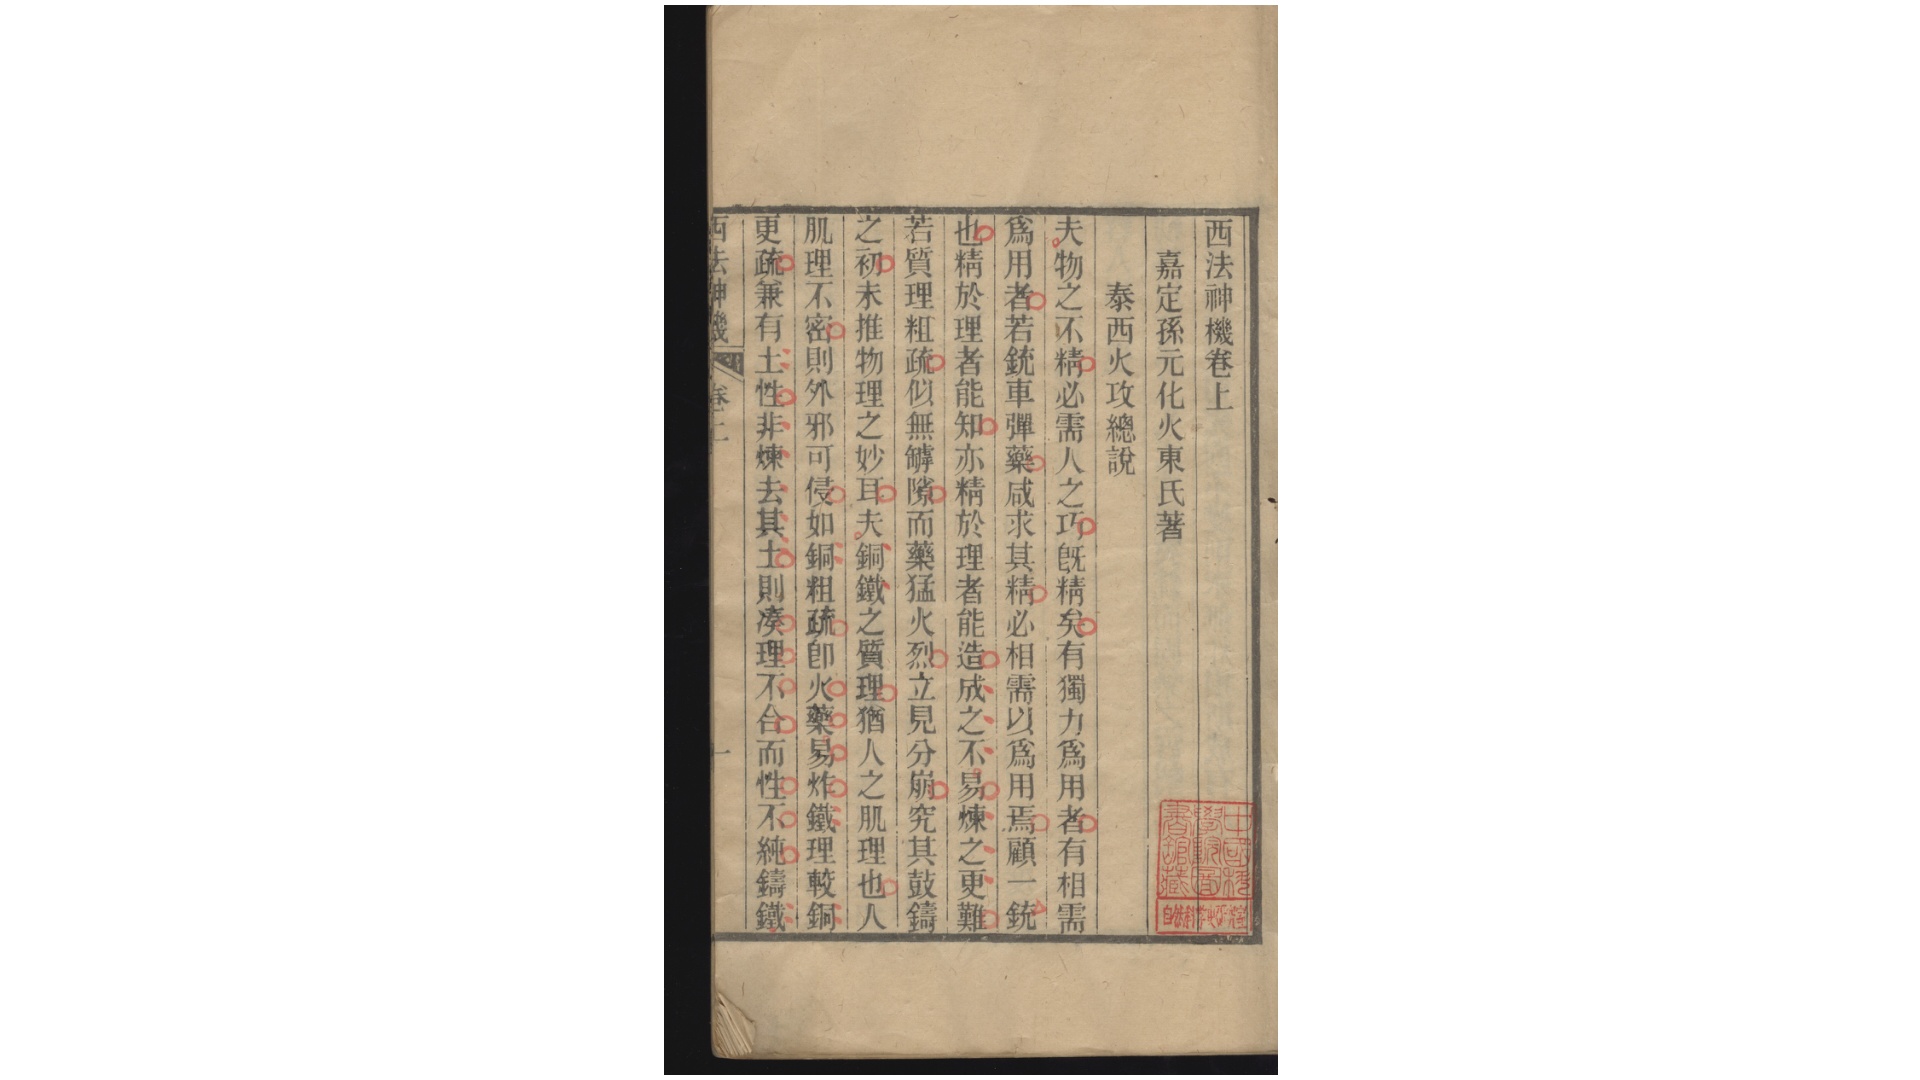 西法神機卷上
嘉定孫元化火東氏著
泰西火攻總說
夫物之不精必需人之巧旣精矣有獨力爲用者有相需
爲用者若銃車彈藥咸求其精必相需以爲用焉顧一銃
也精於理者能知亦精於理者能造成之不易煉之更難
若質理粗疏似無罅隙而藥猛火烈立見分崩究其鼓鑄
之初未推物理之妙耳夫銅鐵之質理猶人之肌理也人
肌理不密則外邪可侵如銅粗疏卽火藥易炸鐵理較銅
更疏兼有土性非煉去其土則湊理不合而性不純鑄鐵
西法神機
卷上
一